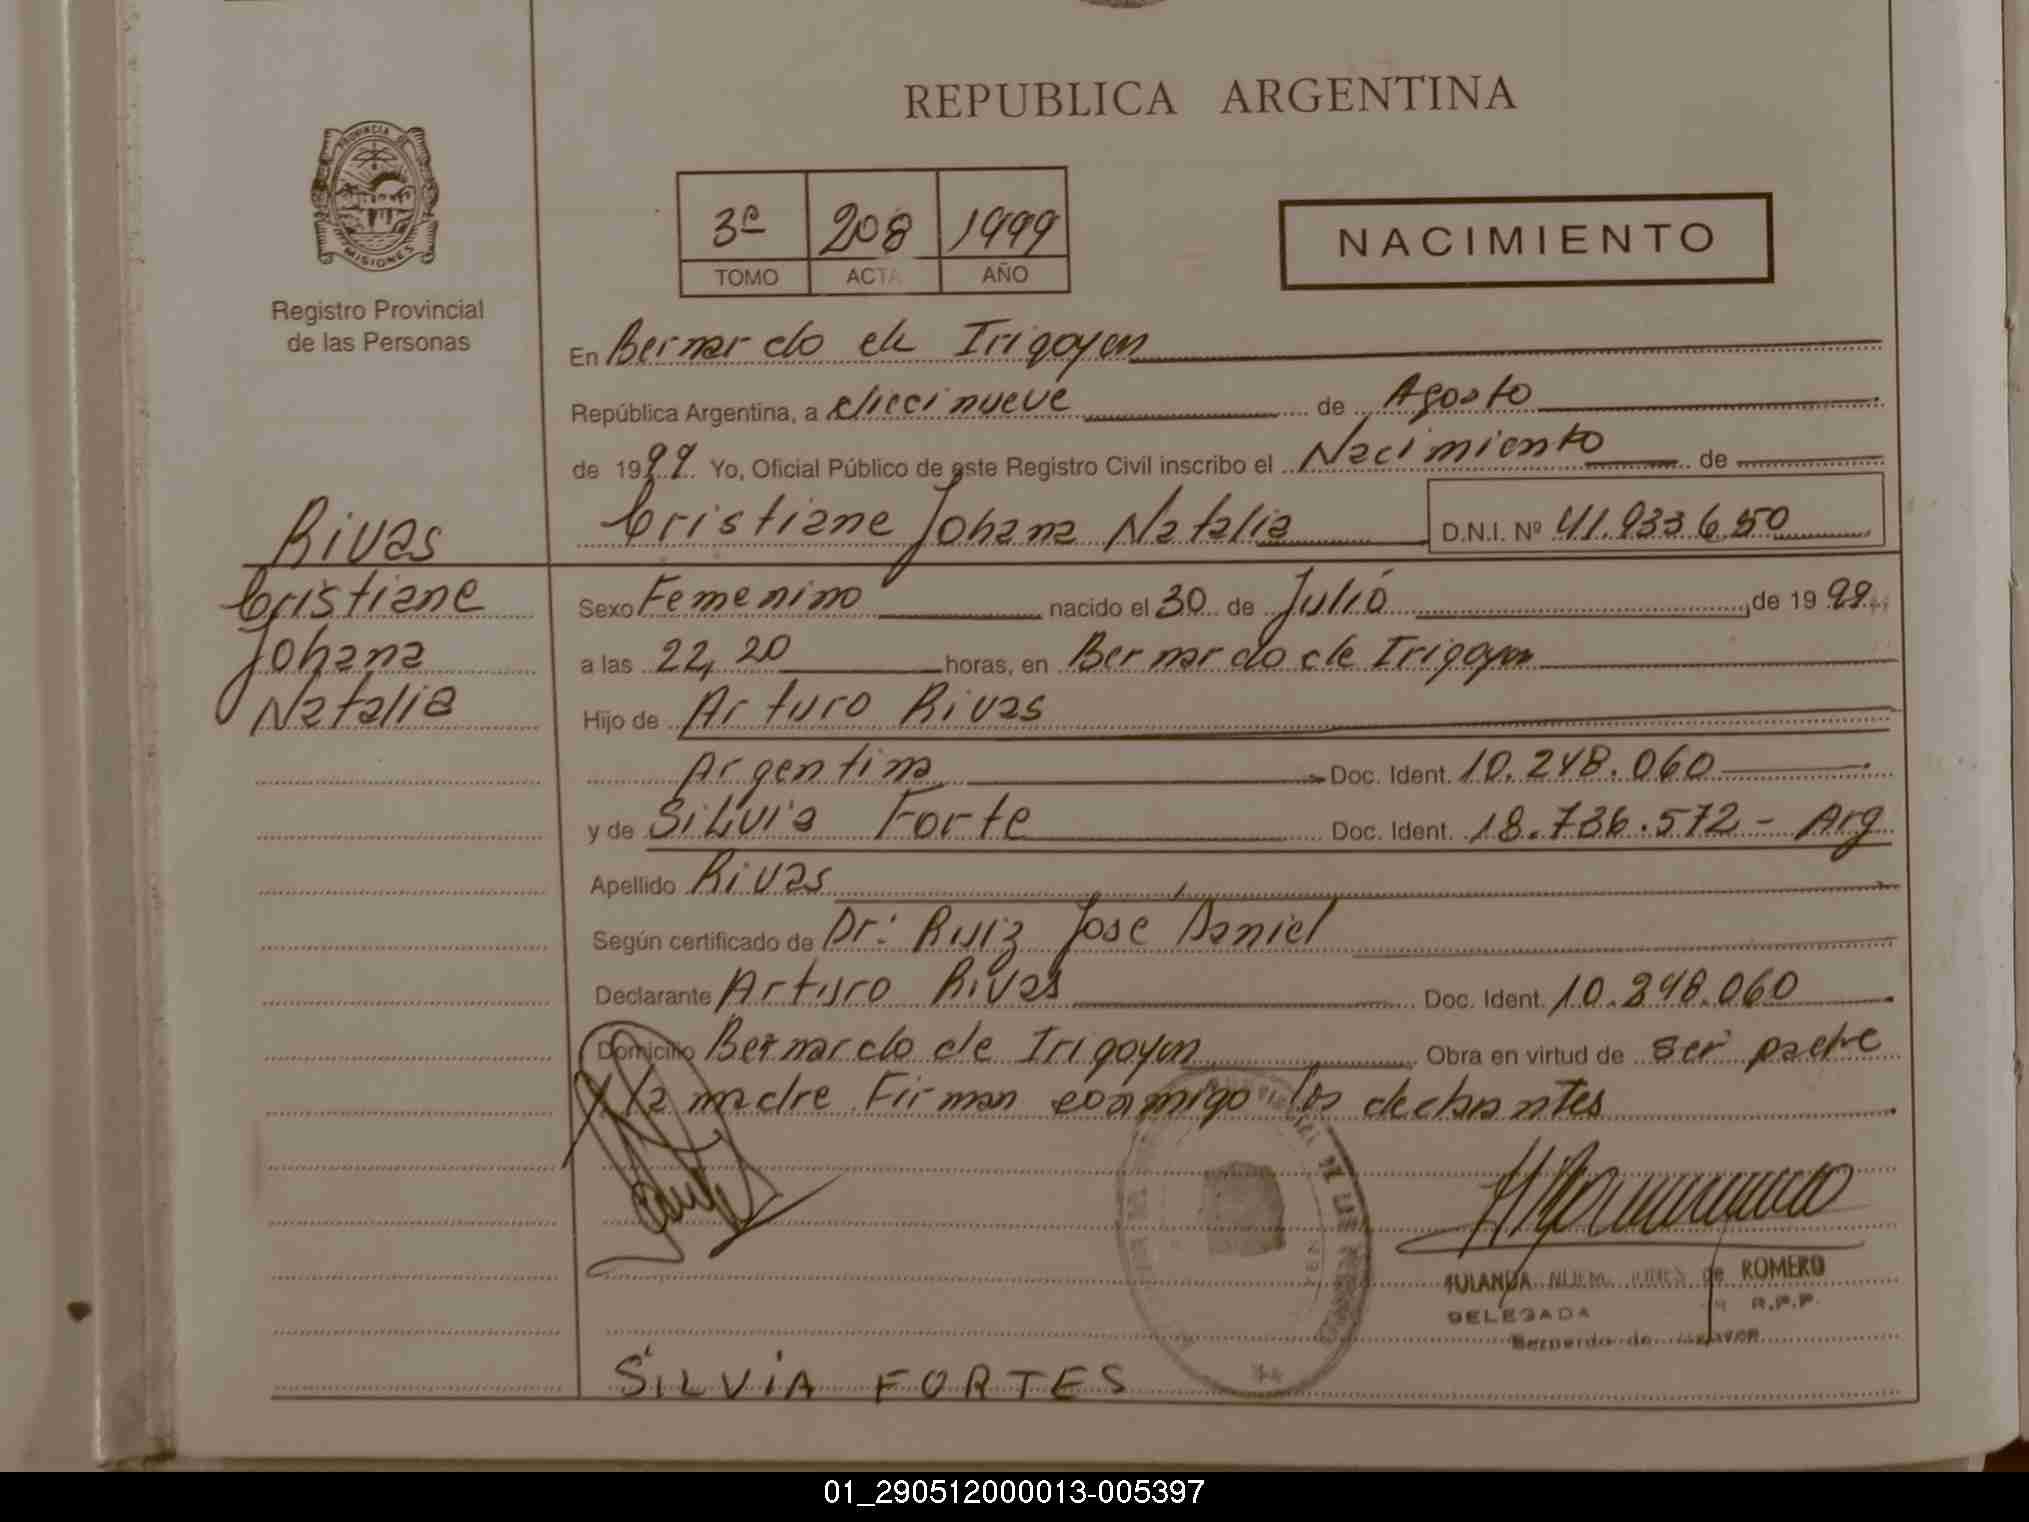 REPUBLICA ARGENTINA
PROVINCIA DE
MISIONES
Registro Provincial
de las Personas
3º 208 1999
TOMO ACTA AÑO
NACIMIENTO
En Bernardo de Irigoyen
República Argentina, a diecinueve de Agosto
de 1999 Yo, Oficial Público de este Registro Civil inscribo el Nacimiento de
Cristiane Johana Natalia D.N.I. Nº 41.933650
Rivas
Cristiane
Johana
Natalia
Sexo Femenino nacido el 30 de Julio de 1999
a las 22,20 horas, en Bernardo de Irigoyen
Hijo de Arturo Rivas
Argentina Doc. Ident. 10.248.060
y de Silvia Forte Doc. Ident. 18.736.572 - Arg
Apellido Rivas
Según certificado de Dr: Ruiz José Daniel
Declarante Arturo Rivas Doc. Ident. 10.248.060
Domicilio Bernardo de Irigoyen Obra en virtud de ser padre
y la madre Firman conmigo los declarantes
DE LAS
de ROMERO
DELEGADA R.P.P.
Bernardo de
SILVIA FORTES
01_290512000013-005397